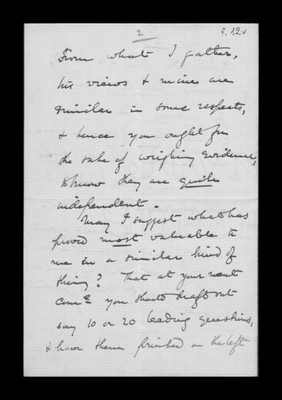 2
f. 12v
From what I gather,
his views & mine are
similar in some respects,
& hence you ought for
the sake of weighing evidence,
to know they are quite
independent.
May I suggest what has
proved most valuable to
me in a similar kind of
thing? That at your next
Com^ee you should draft out
say 10 or 20 leading questions,
& have them printed on the left